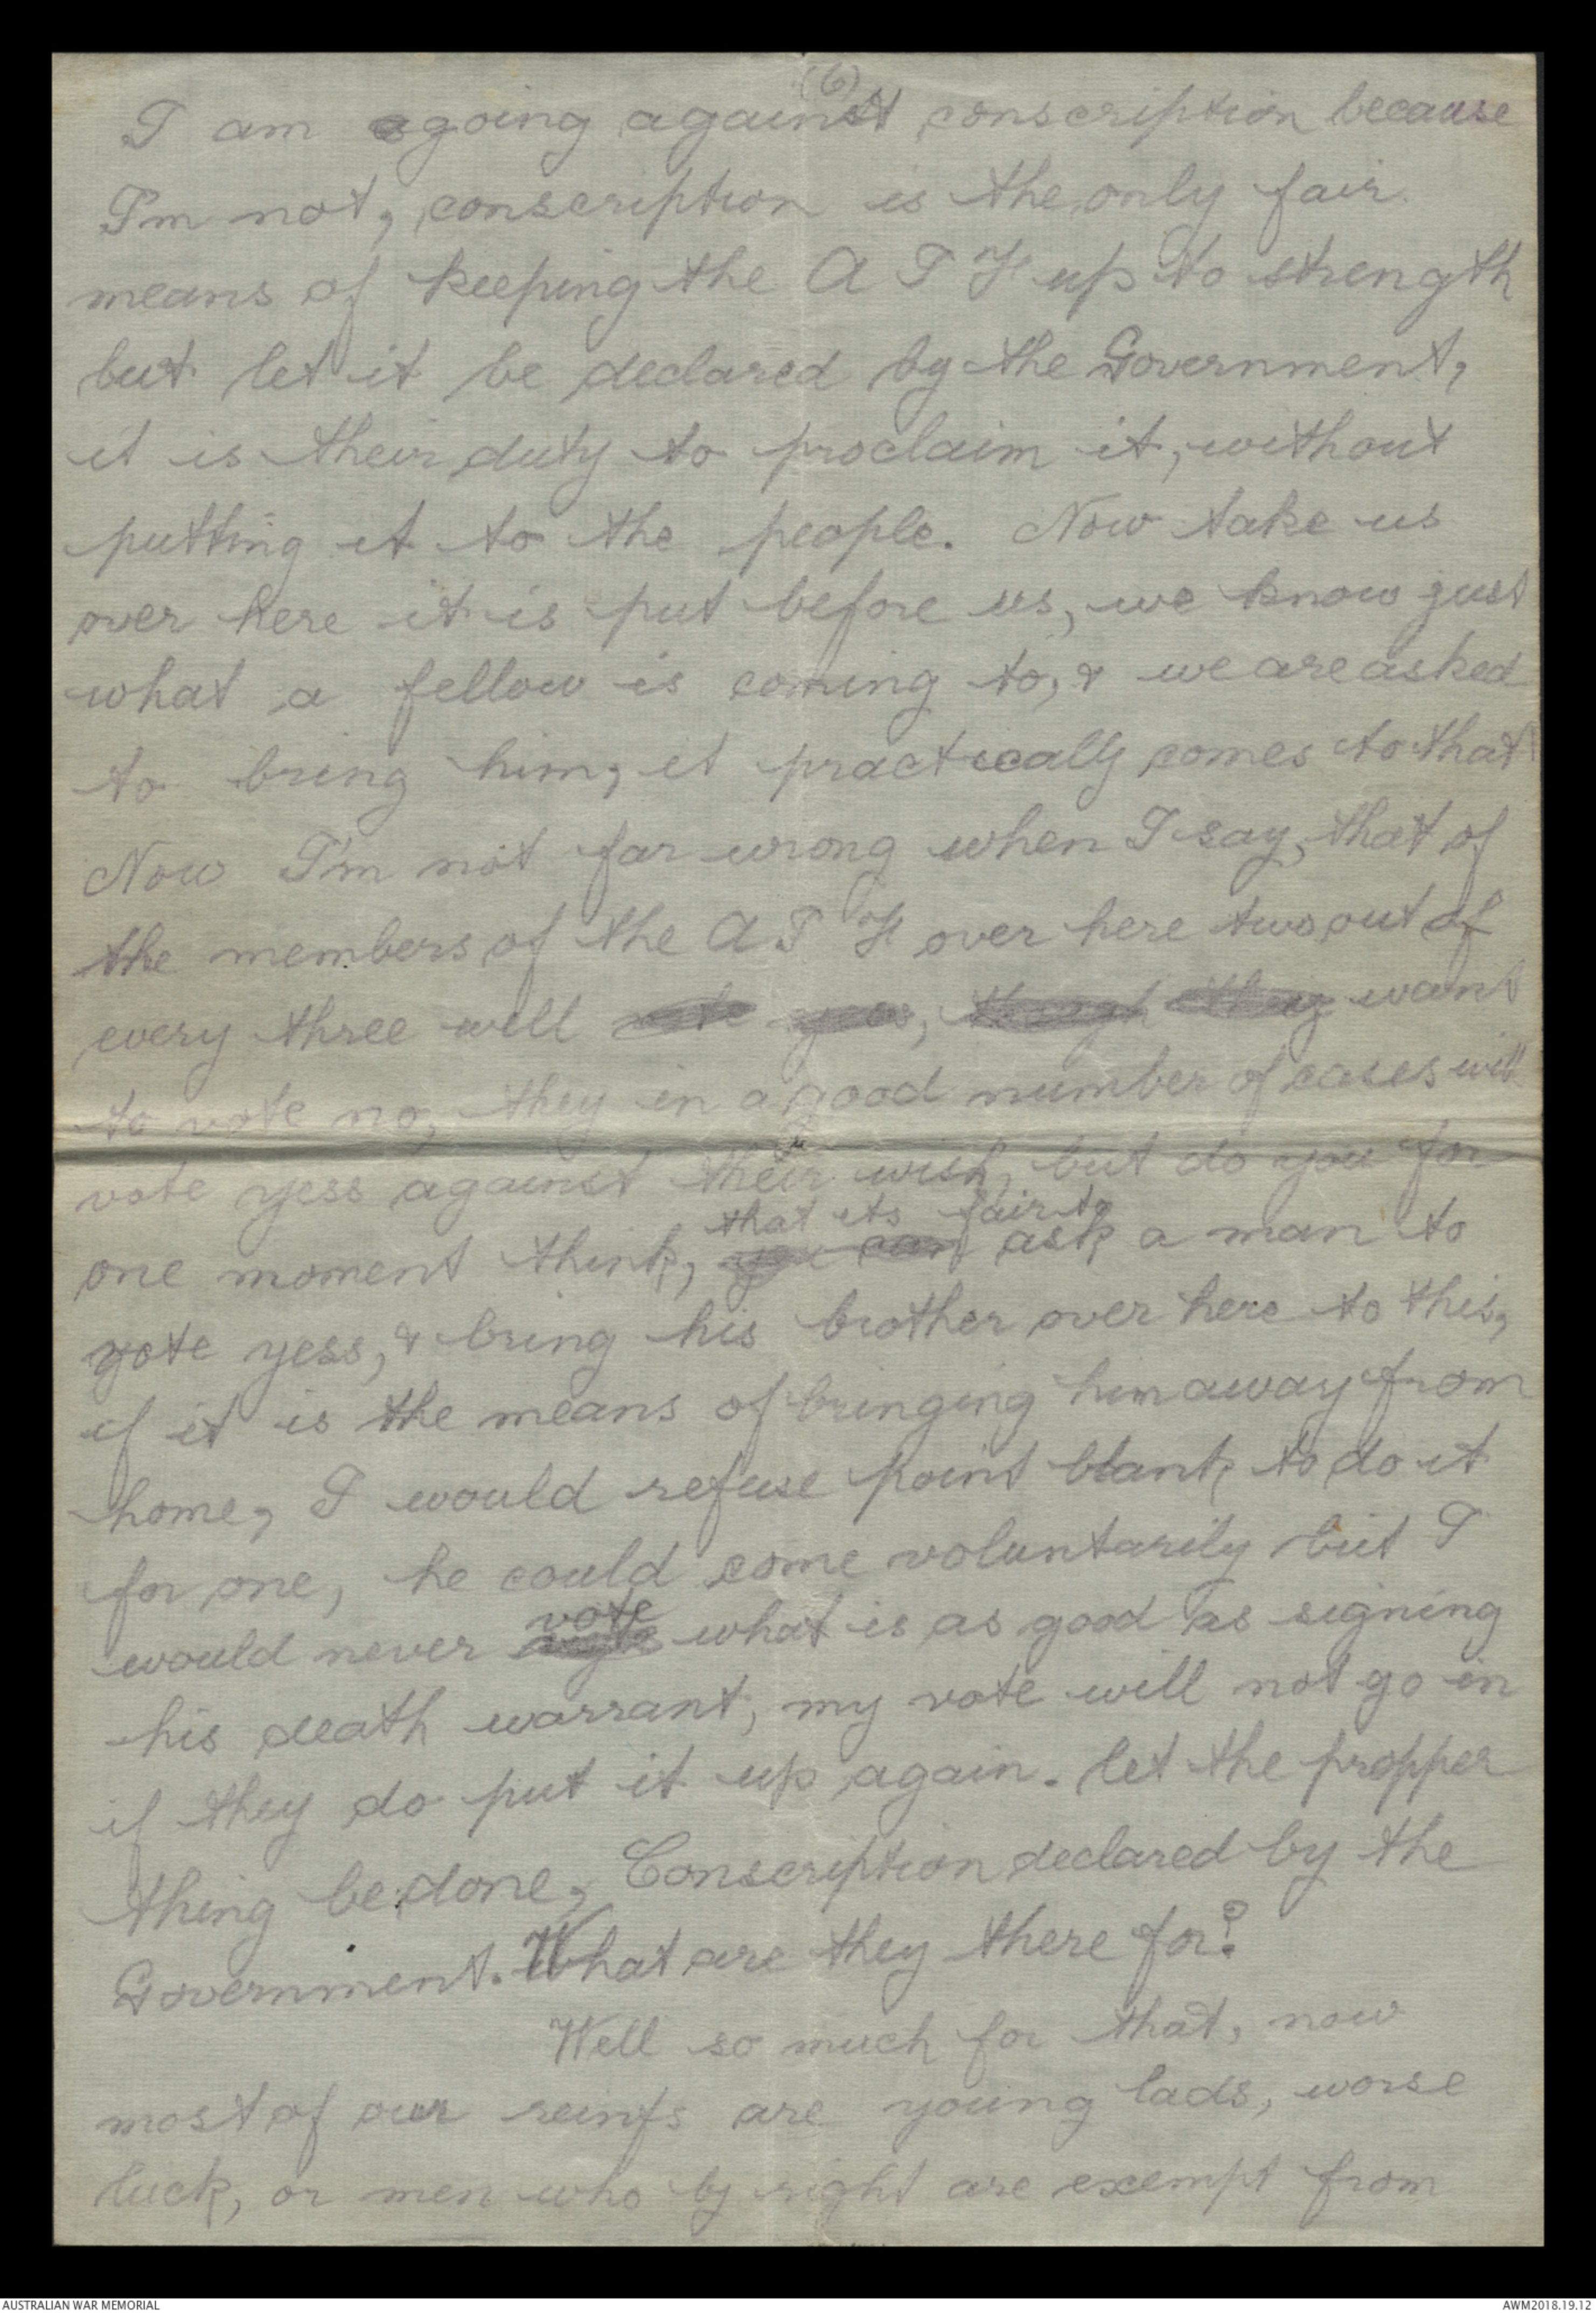 (6)
I am agoing against conscription because
I'm not, conscription is the only fair
means of keeping the A I F up to strength
but let it be declared by the Government,
it is their duty to proclaim it, without
putting it to the people. Now take us
over here it is put before us, we know just
what a fellow is coming to, & we are asked
to bring him, it practically comes to that
Now I'm not far wrong when I say, that of
the members of the A I F over here two out of
every three will vote yess, though they want
to vote no, they in a good number of cases will
vote yess against their wish, but do you for
that its fair to
one moment think, you can ask a man to
vote yess, & bring his brother over here to this,
if it is the means of bringing him away from
home, I would refuse point blank to do it
for one, he could come voluntarily but I
vote
would never what is as good as signing
his death warrant, my vote will not go in
if they do put it up again. let the propper
thing be done, Conscription declared by the
Government. What are they there for?
Well so much for that, now
most of our reinfs are young lads, worse
luck, or men who by right are exempt from
AUSTRALIAN WAR MEMORIAL
AWM2018.19.12